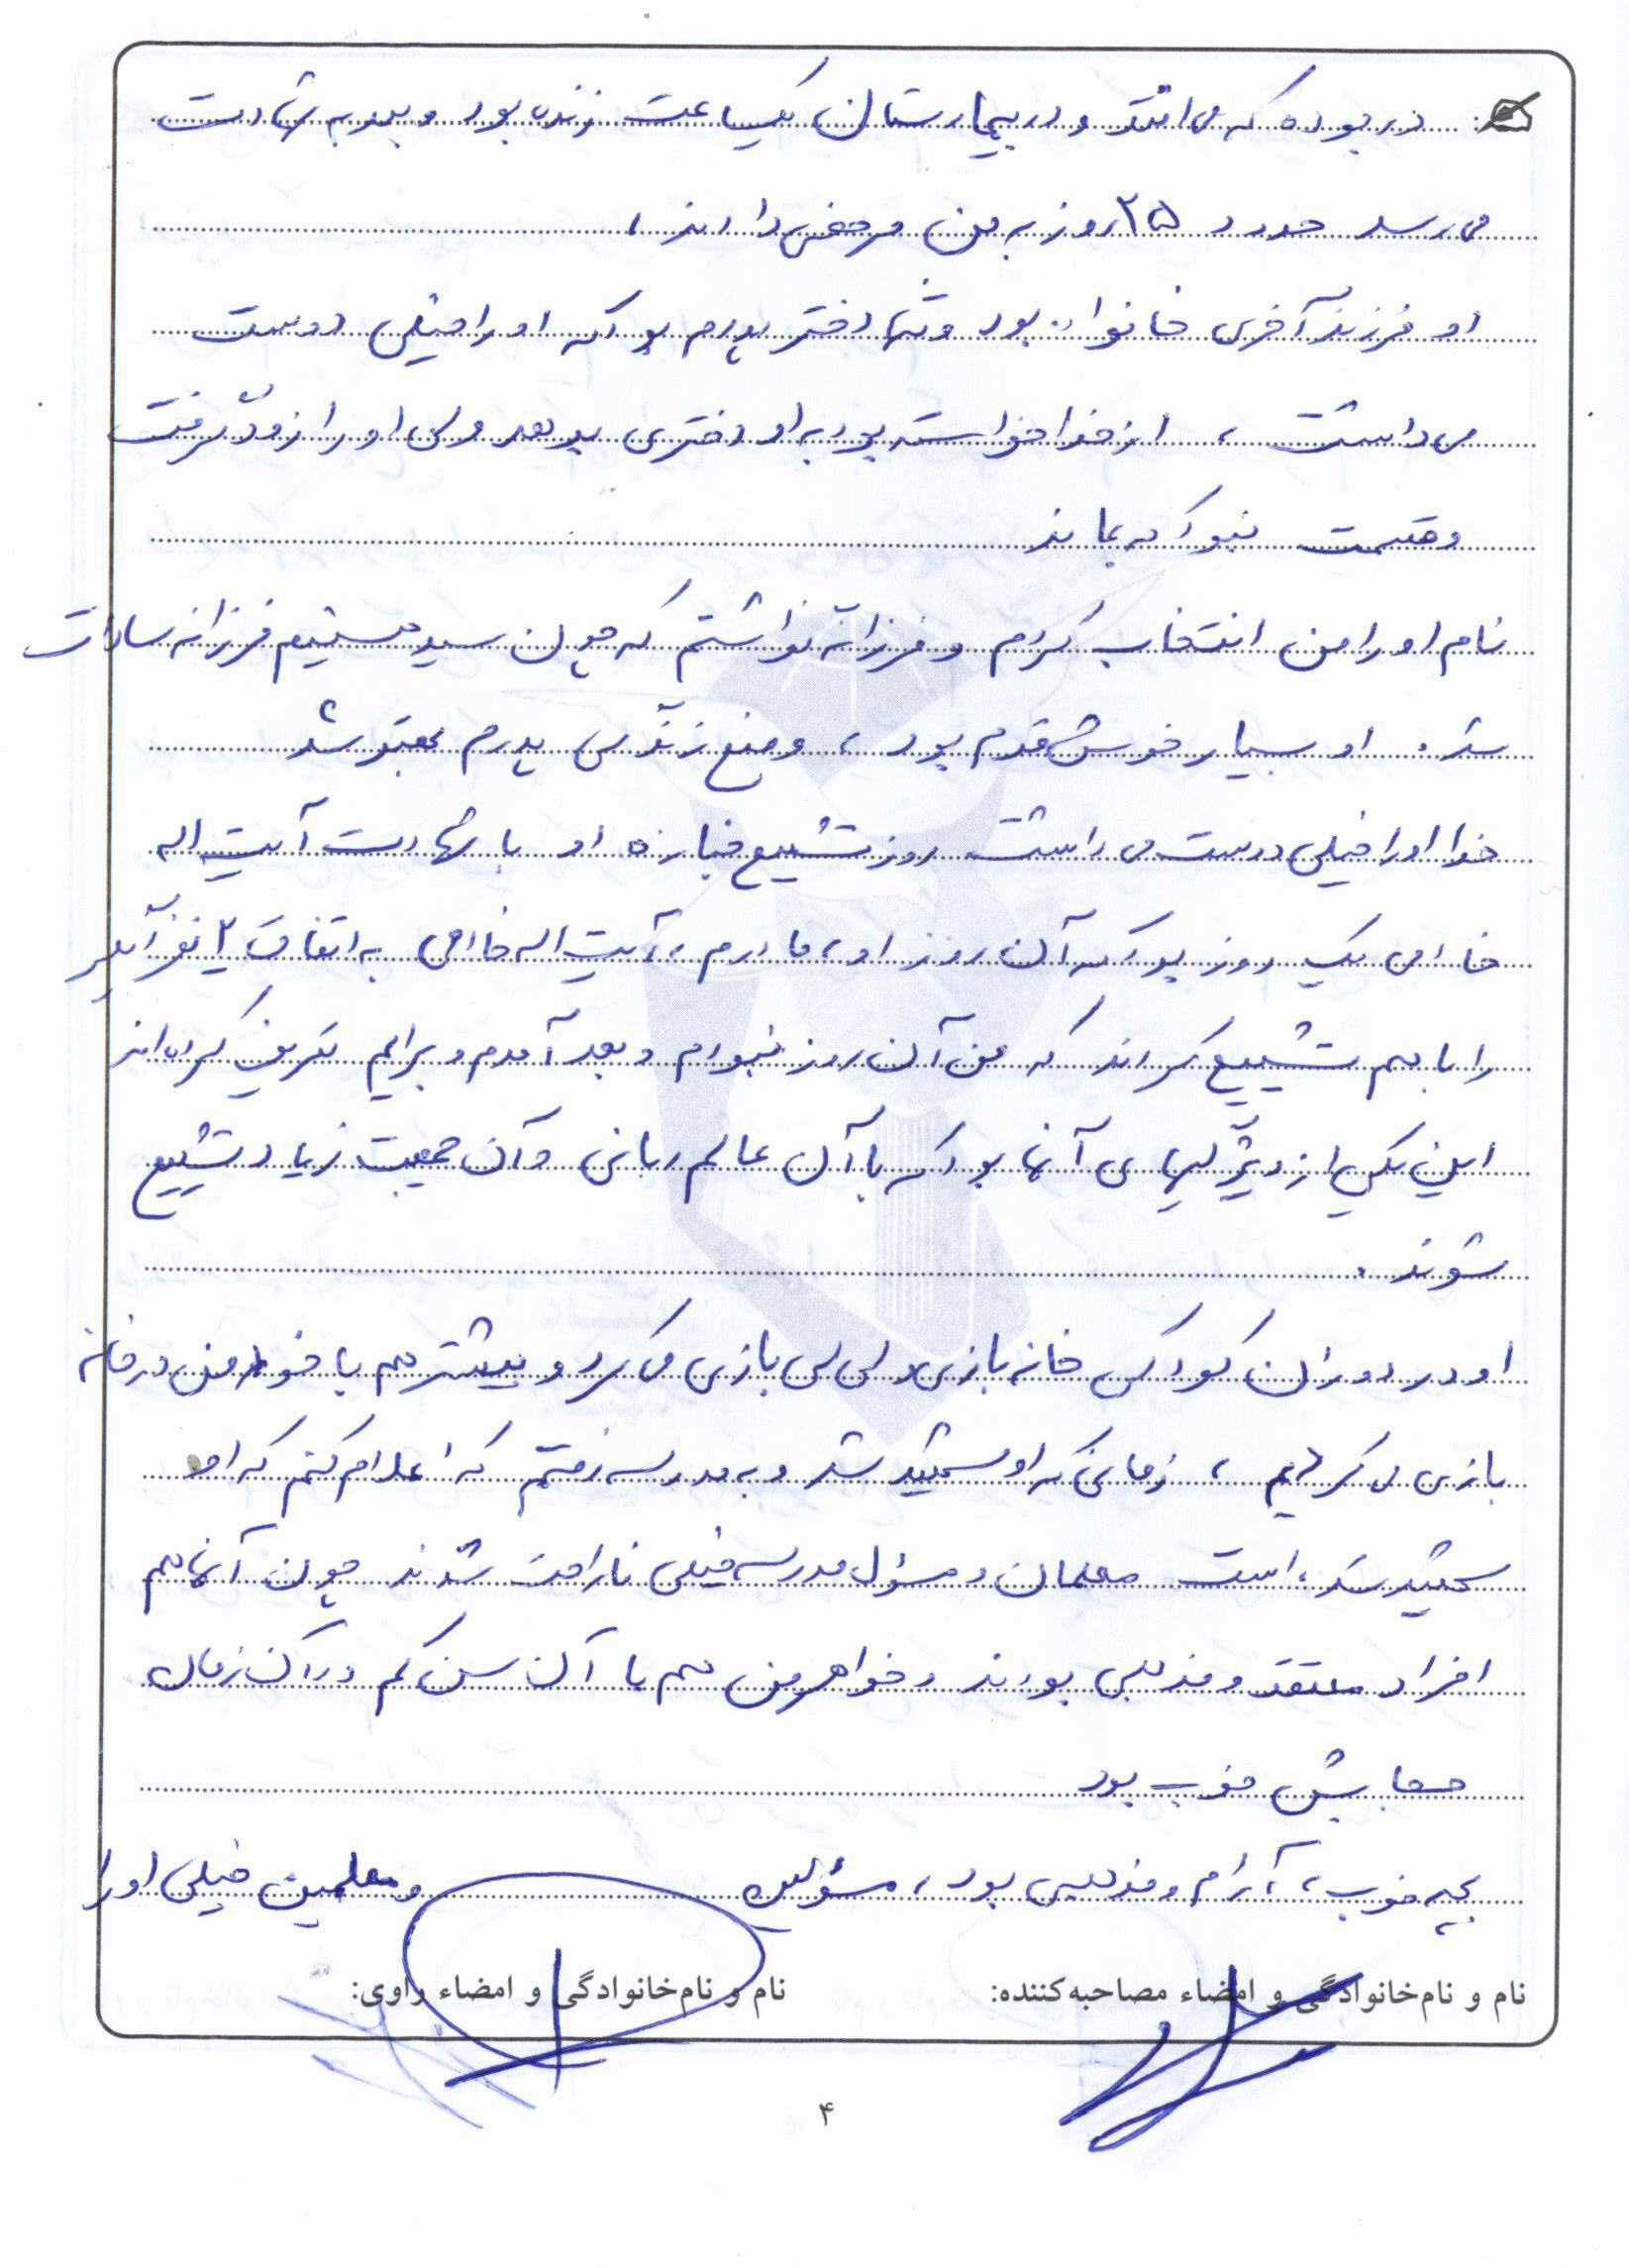 در بوده که می‌افتد و در بیمارستان یکساعت زنده بود و بعد به شهادت
می‌رسد حدود ۲۵ روز به من مرخصی دادند،
او فرزند آخری خانواده بود و تنها دختر پدرم بود که او را خیلی دوست
می‌داشت، از خدا خواسته بود به او دختری بدهد ولی او را زود گرفت
و قسمت نبود که بماند
نام او را من انتخاب کردم و فرزانه گذاشتم که چون سید هستیم فرزانه سادات
شد. او بسیار خوش قدم بود، وضع زندگی پدرم بهتر شد
خدا او را خیلی دوست می‌داشت روز تشییع جنازه او با شهادت آیت اله
خادمی یک روز بود که آن روز او، مادرم، آیت اله خادمی به اتفاق ۲ نفر دیگر
را با هم تشییع کردند که من آن روز نبودم و بعد آمدم و برایم تعریف کرده‌اند
این یکی از ویژگیهای آنها بود که با آن عالم ربانی و آن جمعیت زیاد تشییع
شوند.
او در دوران کودکی خانه بازی و لی لی بازی می‌کرد و بیشتر هم با خود من در خانه
بازی می‌کردیم، زمانی که او شهید شد و به مدرسه رفتم که اعلام کنم که او
شهید شده است معلمان و مسؤل مدرسه خیلی ناراحت شدند چون آنها هم
افراد معتقد و مذهبی بودند و خواهر من هم با آن سن کم در آن زمان
حجابش خوب بود
بچه خوب، آرام و مذهبی بود، مسؤلین و معلمین خیلی او را
نام و نام‌خانوادگی و امضاء مصاحبه‌کننده: نام و نام‌خانوادگی و امضاء راوی:
۴